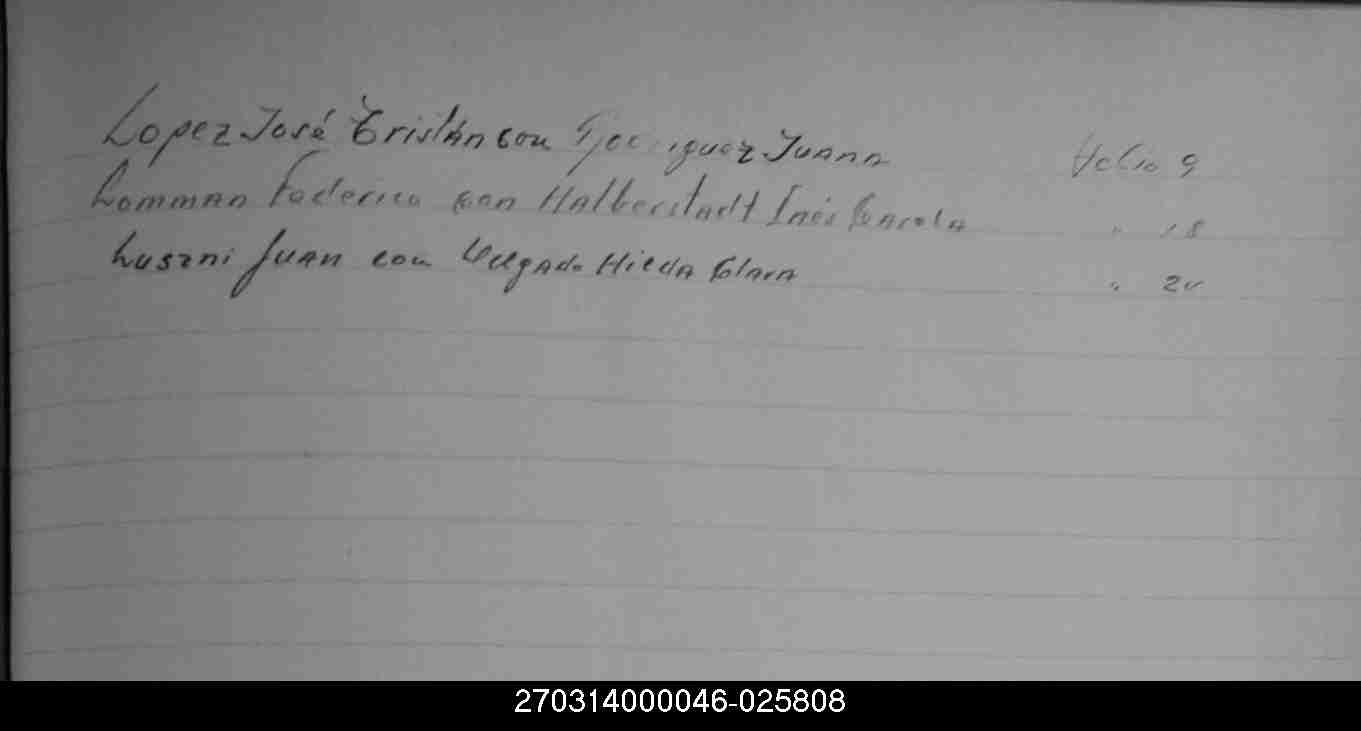 Lopez José Tristán con Juana Folio 9
Lomman Federico con Halberstadt Inés Carola " 18
Luszni Juan con Delgado Hilda Clara "
270314000046-025808